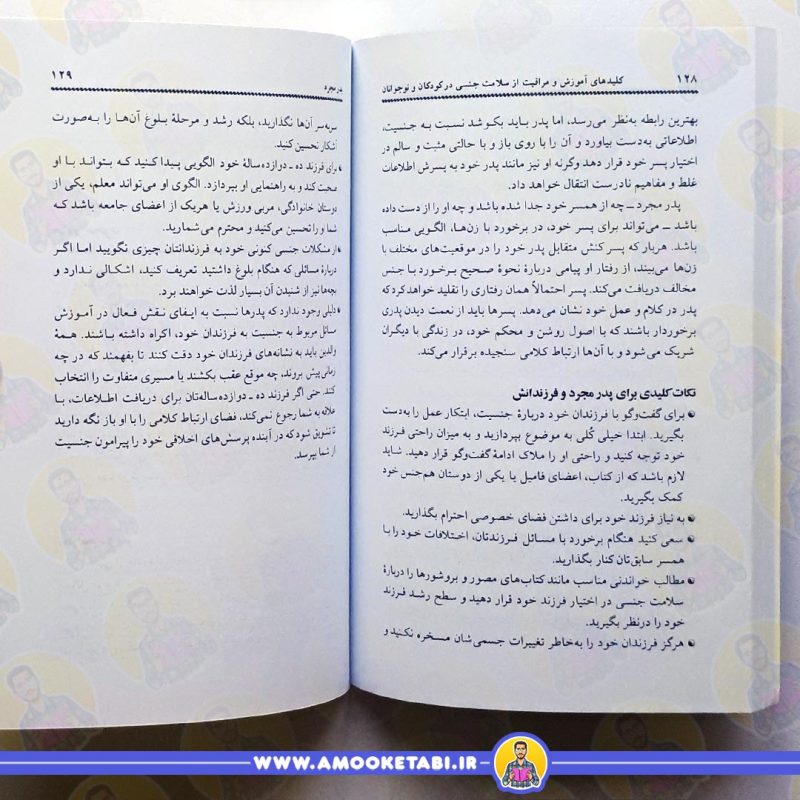 ۱۲۸
کلیدهای آموزش و مراقبت از سلامت جنسی در کودکان و نوجوانان
بهترین رابطه به‌نظر می‌رسد، اما پدر باید بکوشد نسبت به جنسیت،
اطلاعاتی به‌دست بیاورد و آن را با روی باز و با حالتی مثبت و سالم در
اختیار پسر خود قرار دهد وگرنه او نیز مانند پدر خود به پسرش اطلاعات
غلط و مفاهیم نادرست انتقال خواهد داد.
پدر مجرد ـ چه از همسر خود جدا شده باشد و چه او را از دست داده
باشد ـ می‌تواند برای پسر خود، در برخورد با زن‌ها، الگویی مناسب
باشد. هربار که پسر کنش متقابل پدر خود را در موقعیت‌های مختلف با
زن‌ها می‌بیند، از رفتار او پیامی دربارهٔ نحوهٔ صحیح برخورد با جنس
مخالف دریافت می‌کند. پسر احتمالاً همان رفتاری را تقلید خواهد کرد که
پدر در کلام و عمل خود نشان می‌دهد. پسرها باید از نعمت دیدن پدری
برخوردار باشند که با اصول روشن و محکم خود، در زندگی با دیگران
شریک می‌شود و با آن‌ها ارتباط کلامی سنجیده برقرار می‌کند.
نکات کلیدی برای پدر مجرد و فرزندانش
● برای گفت‌وگو با فرزندان خود دربارهٔ جنسیت، ابتکار عمل را به‌دست
بگیرید. ابتدا خیلی کُلی به موضوع بپردازید و به میزان راحتی فرزند
خود توجه کنید و راحتی او را ملاک ادامهٔ گفت‌وگو قرار دهید. شاید
لازم باشد که از کتاب، اعضای فامیل یا یکی از دوستان هم‌جنس خود
کمک بگیرید.
● به نیاز فرزند خود برای داشتن فضای خصوصی احترام بگذارید.
● سعی کنید هنگام برخورد با مسائل فرزندتان، اختلافات خود را با
همسر سابق‌تان کنار بگذارید.
● مطالب خواندنی مناسب مانند کتاب‌های مصور و بروشورها را دربارهٔ
سلامت جنسی در اختیار فرزند خود قرار دهید و سطح رشد فرزند
خود را درنظر بگیرید.
● هرگز فرزندان خود را به‌خاطر تغییرات جسمی‌شان مسخره نکنید و
مجرد
۱۲۹
سربه‌سر آن‌ها نگذارید، بلکه رشد و مرحلهٔ بلوغ آن‌ها را به‌صورت
آشکار تحسین کنید.
● برای فرزند ده ـ دوازده‌سالهٔ خود الگویی پیدا کنید که بتواند با او
صحبت کند و به راهنمایی او بپردازد. الگوی او می‌تواند معلم، یکی از
دوستان خانوادگی، مربی ورزش یا هریک از اعضای جامعه باشد که
شما او را تحسین می‌کنید و محترم می‌شمارید.
● از مشکلات جنسی کنونی خود به فرزندانتان چیزی نگویید اما اگر
دربارهٔ مسائلی که هنگام بلوغ داشتید تعریف کنید، اشکالی ندارد و
بچه‌ها نیز از شنیدن آن بسیار لذت خواهند برد.
● دلیلی وجود ندارد که پدرها نسبت به ایفای نقش فعال در آموزش
مسائل مربوط به جنسیت به فرزندان خود، اکراه داشته باشند. همهٔ
والدین باید به نشانه‌های فرزندان خود دقت کنند تا بفهمند که در چه
زمانی پیش بروند، چه موقع عقب بکشند یا مسیری متفاوت را انتخاب
کنند. حتی اگر فرزند ده ـ دوازده‌ساله‌تان برای دریافت اطلاعات، با
علاقه به شما رجوع نمی‌کند، فضای ارتباط کلامی را با او باز نگه دارید
تا تشویق شود که در آینده پرسش‌های اخلاقی خود را پیرامون جنسیت
از شما بپرسد.
WWW.AMOOKETABI.IR